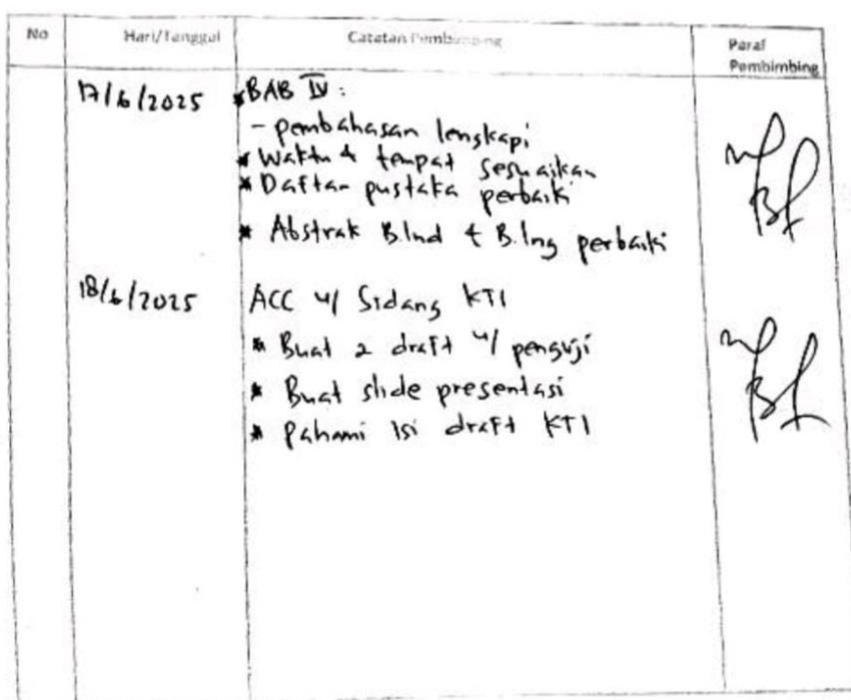 No Hari/Tanggal Catatan Pembimbing Paraf Pembimbing
17/6/2025 * BAB IV :
- pembahasan lengkapi
* Waktu & tempat sesuaikan
* Daftar pustaka perbaiki
* Abstrak B.Ind & B.Ing perbaiki
18/6/2025 ACC u/ Sidang KTI
* Buat 2 draft u/ penguji
* Buat slide presentasi
* Pahami isi draft KTI